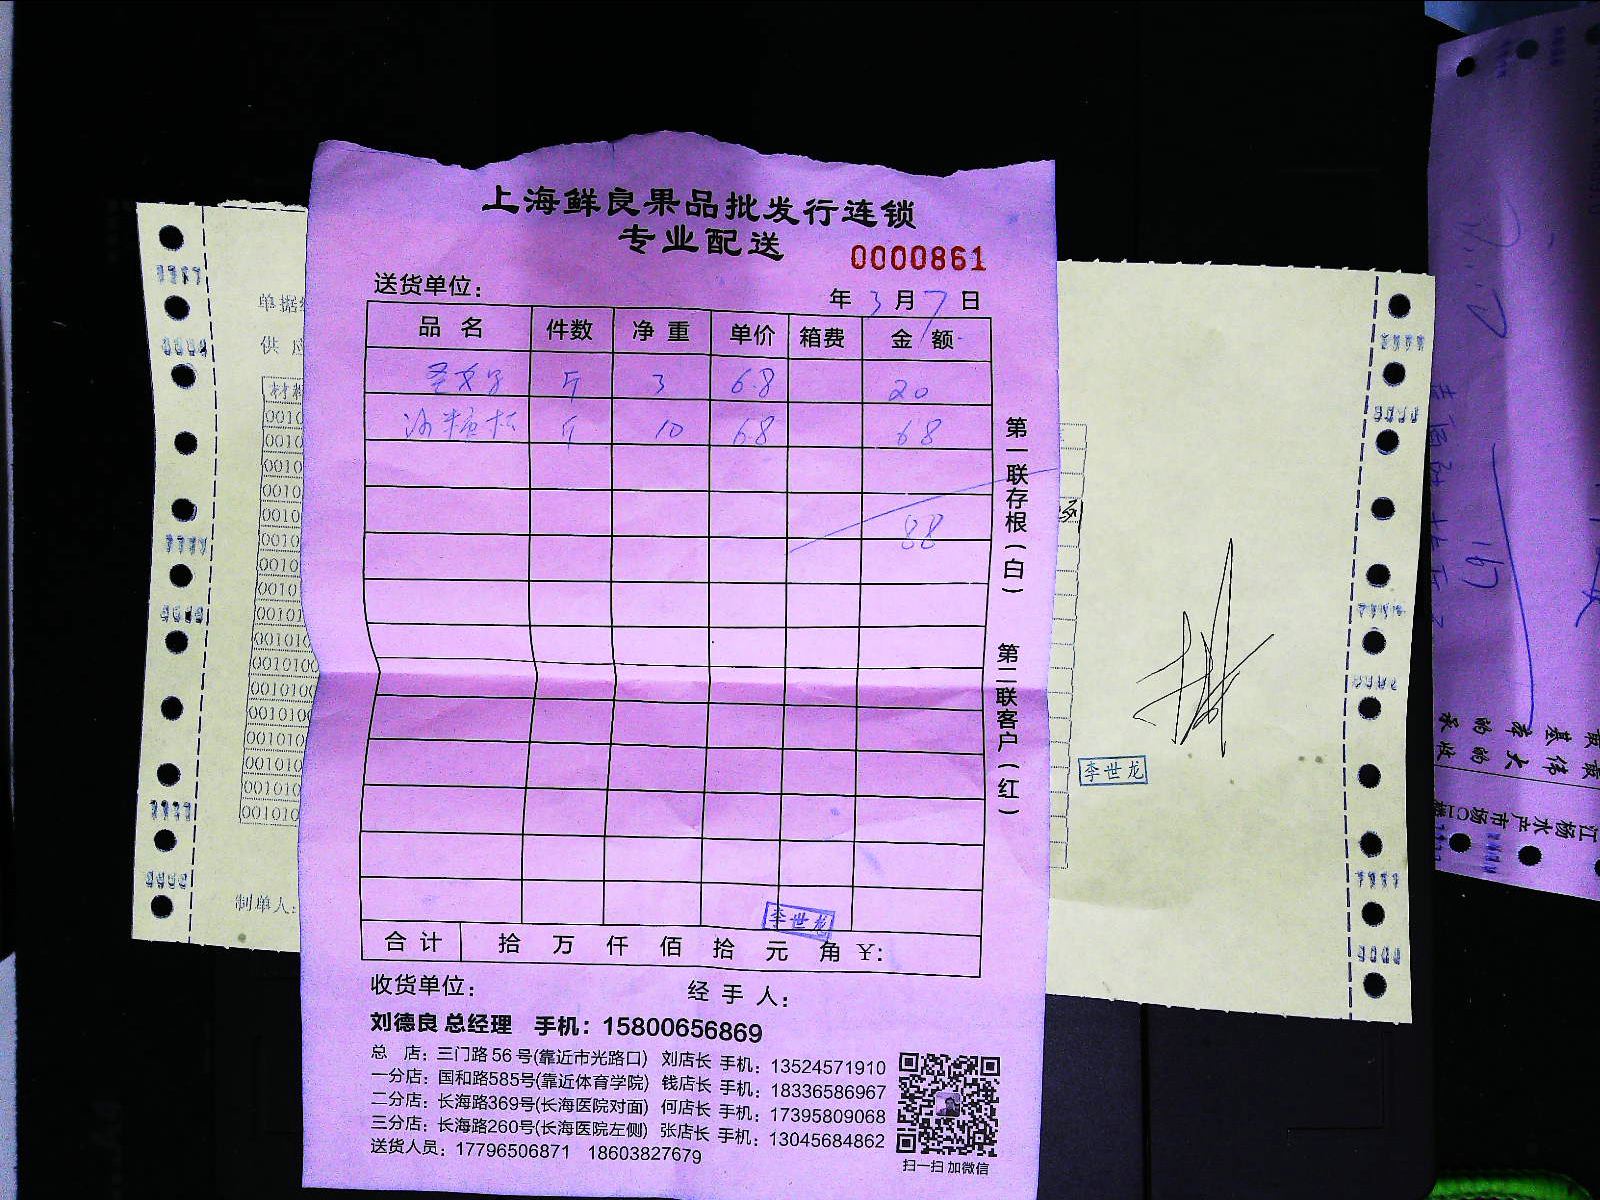 上海鲜良果品批发行连锁
专业配送
0000861
送货单位：
年 3 月 7 日
品 名 件数 净 重 单价 箱费 金 额
圣女果 斤 3 6.8 20
沙糖桔 斤 10 6.8 68
88
第一联存根（白）
第二联客户（红）
李世龙
合 计 拾 万 仟 佰 拾 元 角 ￥：
收货单位： 经 手 人：
刘德良 总经理 手机：15800656869
总 店：三门路56号(靠近市光路口) 刘店长 手机：13524571910
一分店：国和路585号(靠近体育学院) 钱店长 手机：18336586967
二分店：长海路369号(长海医院对面) 何店长 手机：17395809068
三分店：长海路260号(长海医院左侧) 张店长 手机：13045684862
送货人员：17796506871 18603827679
扫一扫 加微信
单据
供 应
材料
0010
0010
0010
0010
0010
0010
0010
0010
00101
001010
0010100
0010100
0010100
001010
001010
001010
001010
制单人：
李世龙
江杨水产市场C1